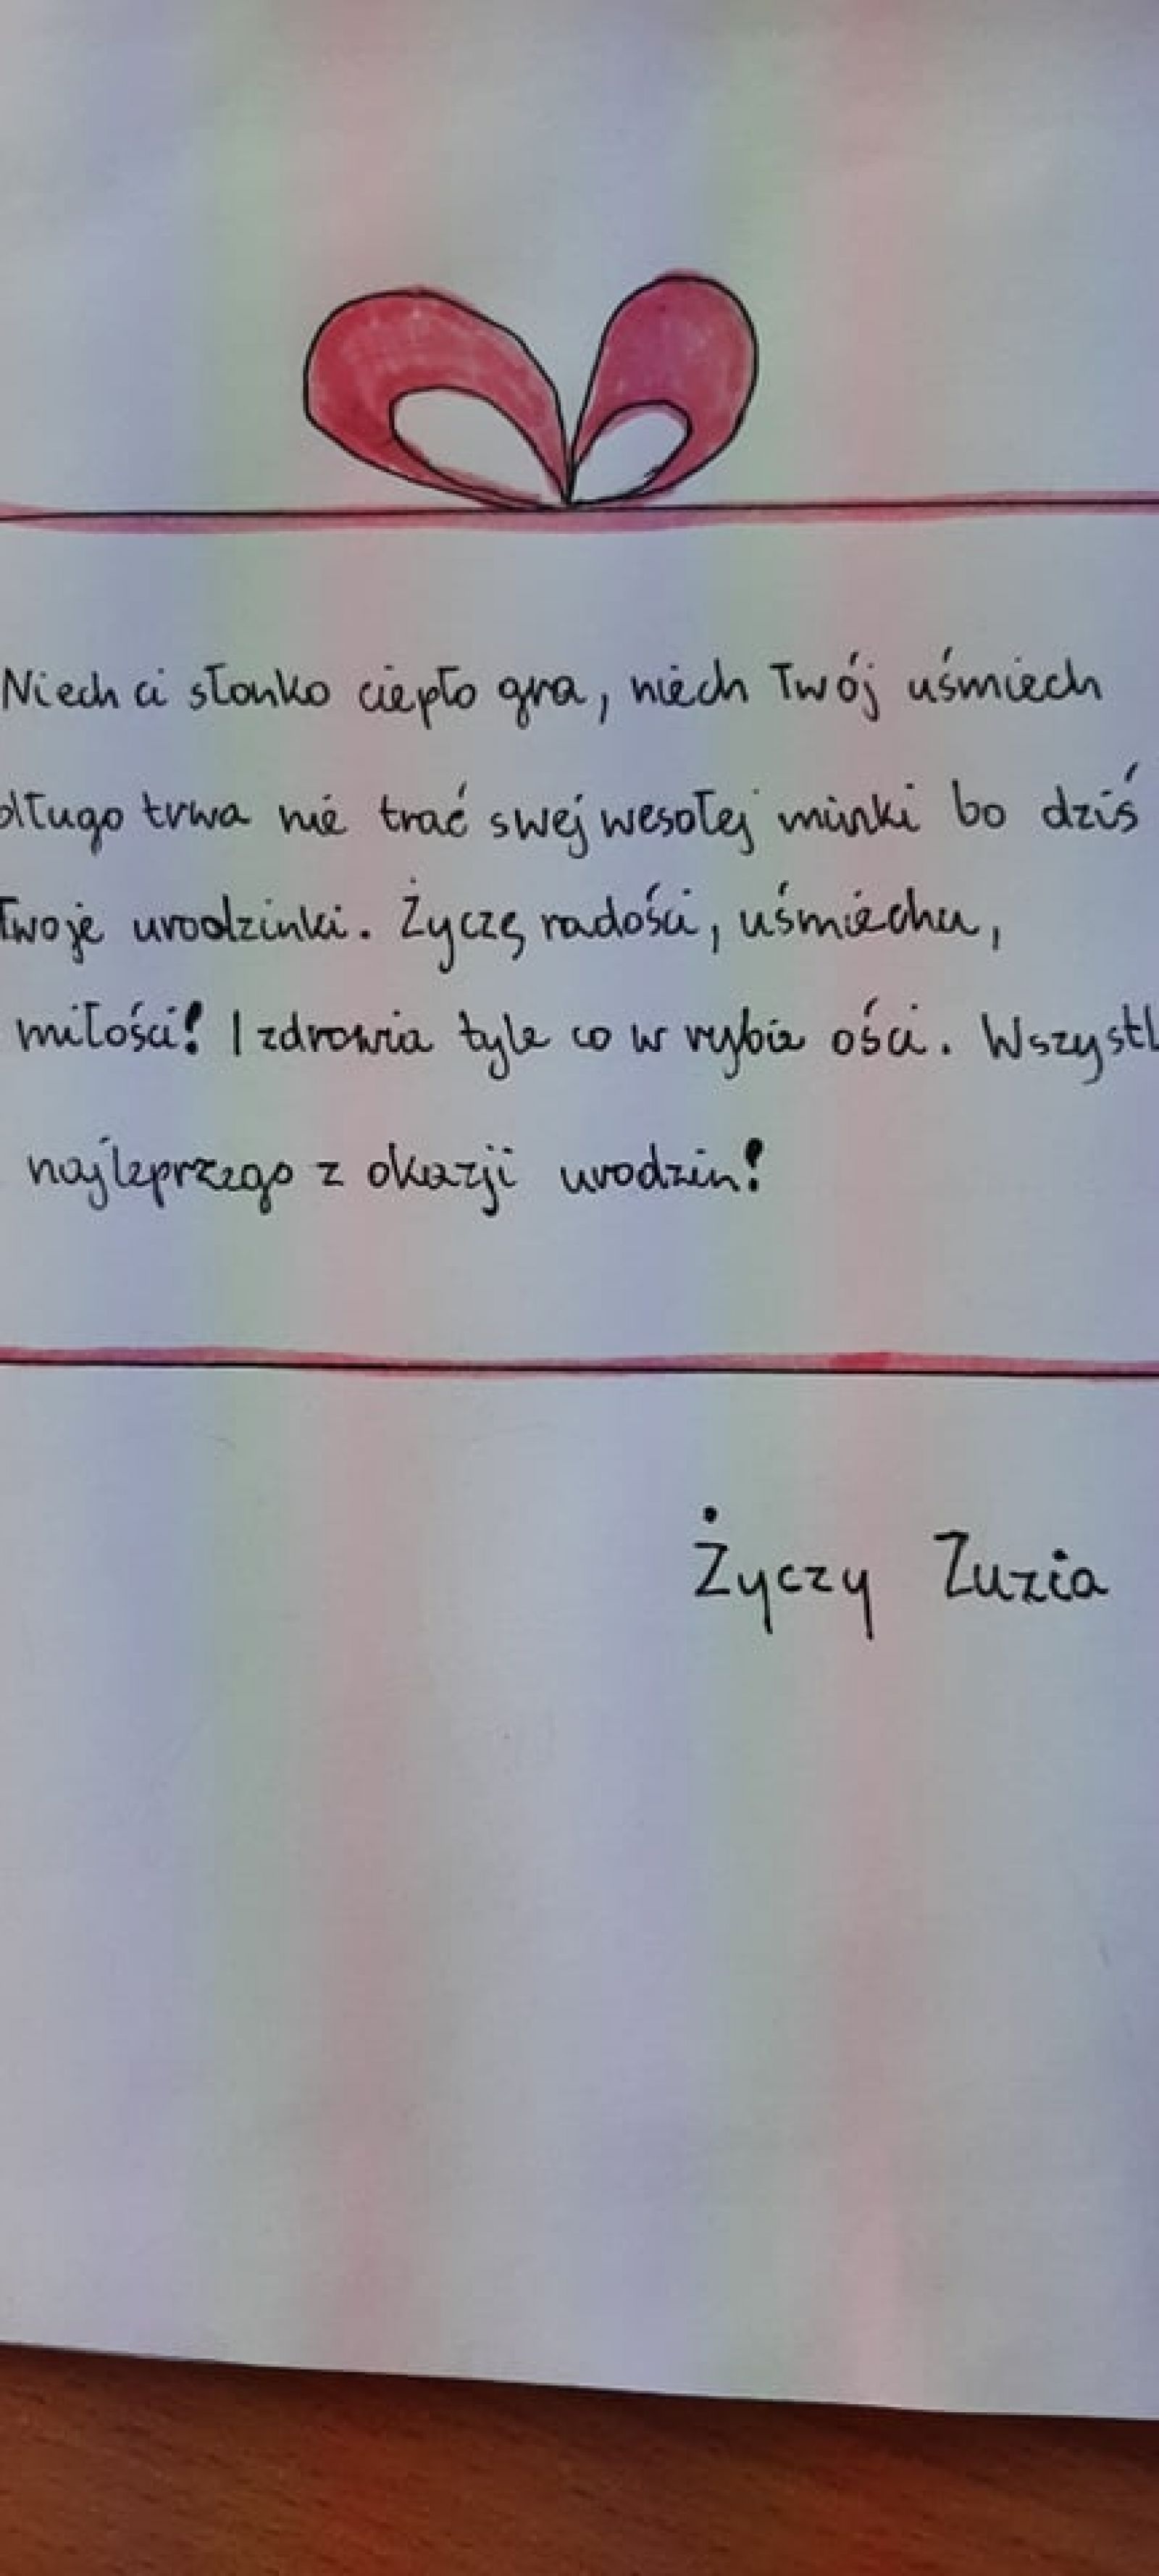 Niech ci słonko ciepło gra, niech Twój uśmiech
długo trwa nie trać swej wesołej minki bo dziś
Twoje urodzinki. Życzę radości, uśmiechu,
miłości! I zdrowia tyle co w rybie ości. Wszystk
najleprzego z okazji urodzin!
Życzy Zuzia